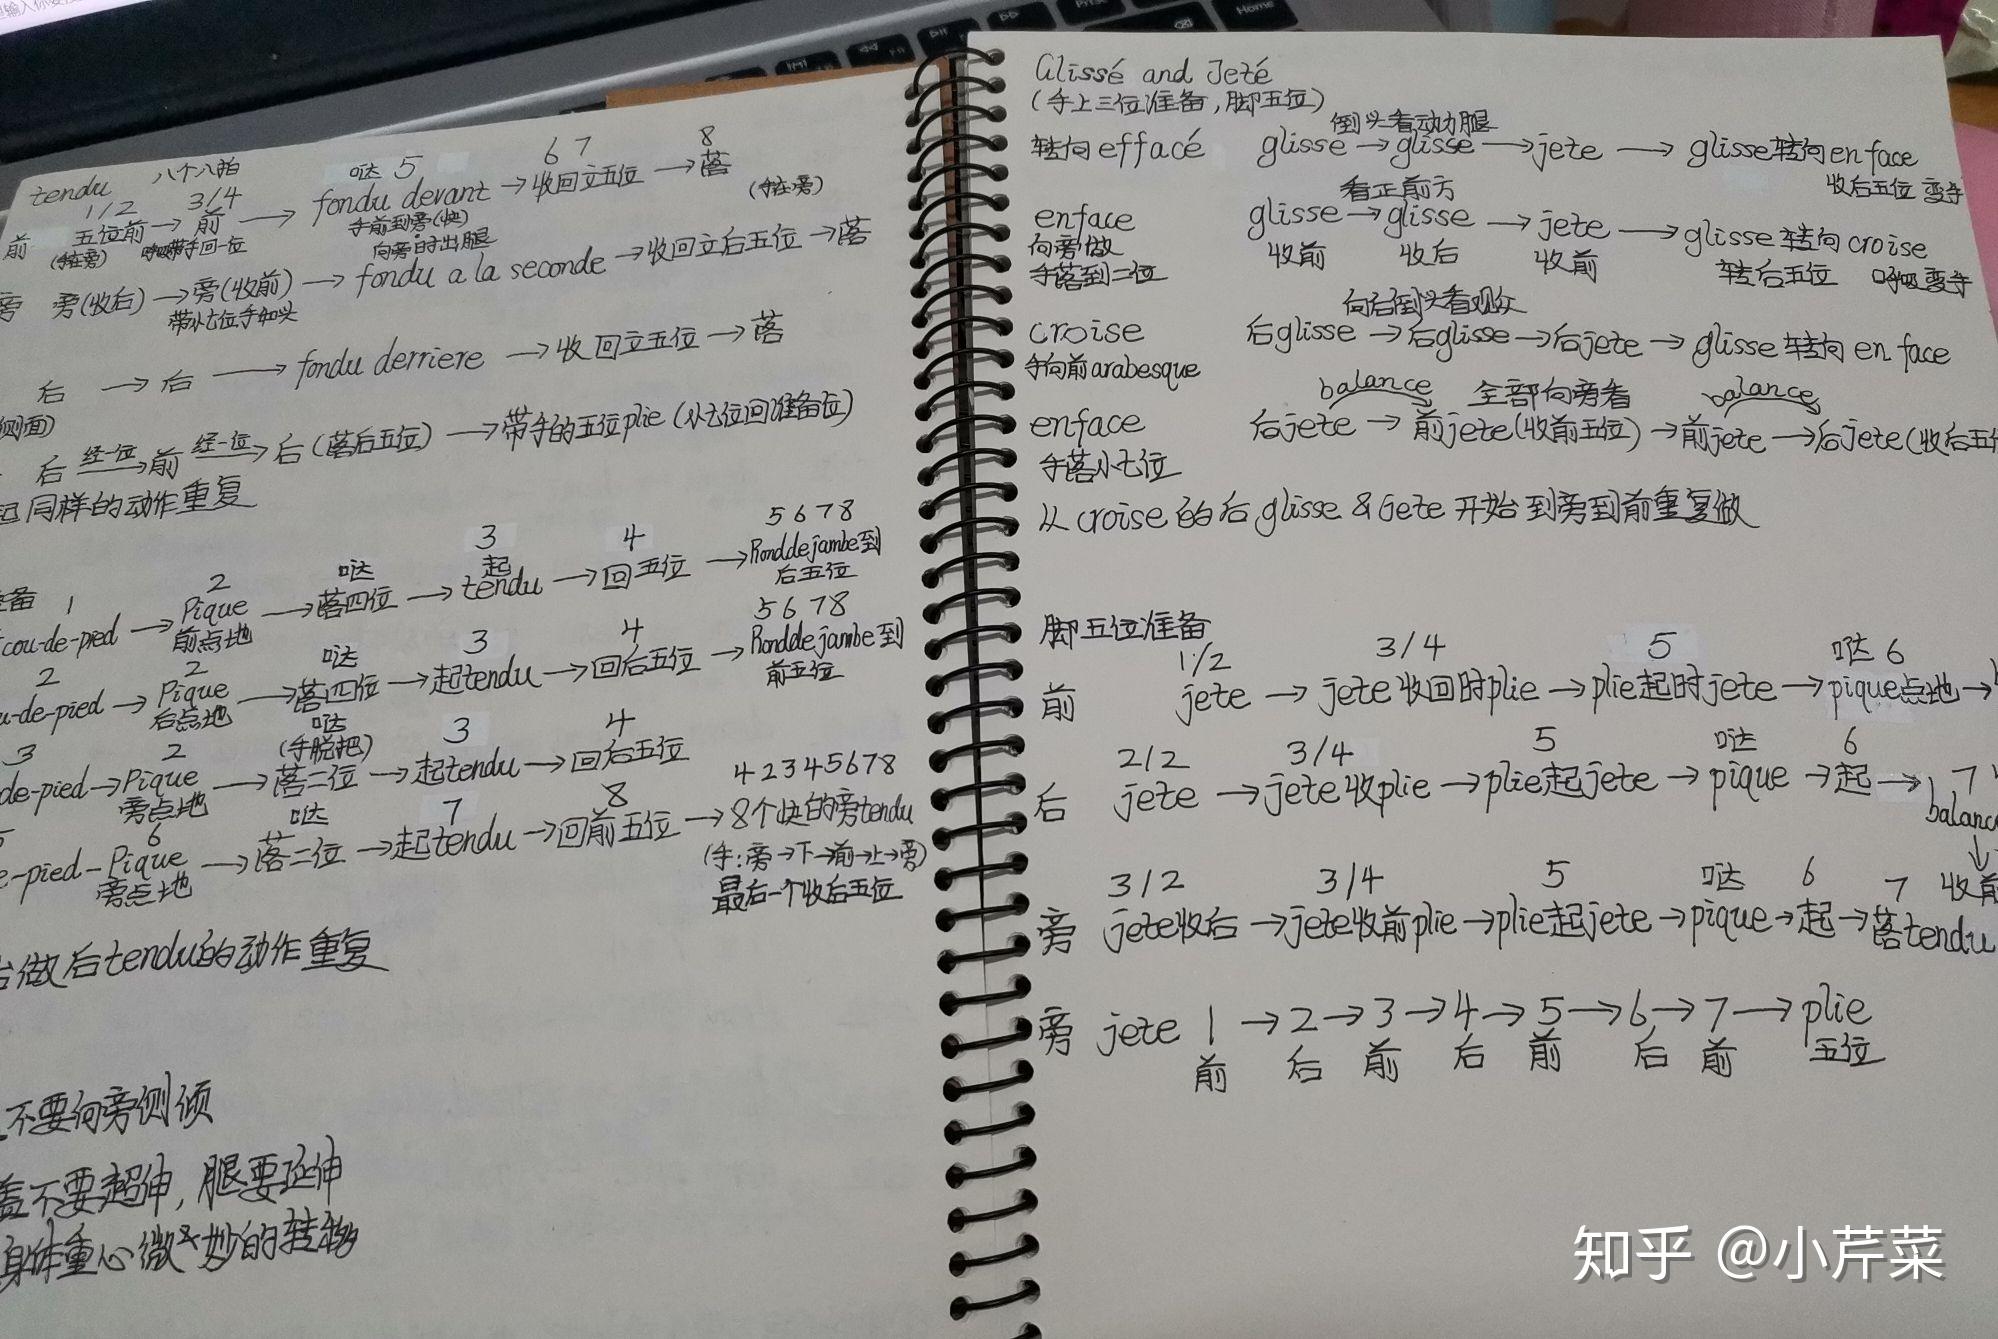 tendu 八个八拍
1/2 3/4 哒 5 6 7 8
前 五位前→前→fondu devant→收回立五位→落
(手在旁) 呼吸带手回一位 手前到旁(快) (手在旁)
向旁时出腿
旁 旁(收后)→旁(收前)→fondu a la seconde→收回立后五位→落
带小七位手和头
后→后→fondu derriere→收回立五位→落
侧面)
后 经一位→前 经一位→后(落后五位)→带手的五位plie(小七位回准备位)
起同样的动作重复
5 6 7 8
准备 1 2 哒 3 4
cou-de-pied→Pique→落四位→起tendu→回五位→Rond de jambe到
前点地 后五位
2 2 哒 3 4 5 6 7 8
u-de-pied→Pique→落四位→起tendu→回后五位→Rond de jambe到
后点地 前五位
3 2 哒 3 4
(手脱把)
de-pied→Pique→落二位→起tendu→回后五位
旁点地
5 6 哒 7 8 4 2 3 4 5 6 7 8
e-pied-Pique→落二位→起tendu→回前五位→8个快的旁tendu
旁点地 (手:旁→下→前→上→旁)
最后一个收后五位
做后tendu的动作重复
不要向旁侧倾
盖不要超伸,腿要延伸
身体重心微妙的转移
Glissé and Jeté
(手上三位准备,脚五位)
倒头看动力腿
转向effacé glisse→glisse→jete→glisse转向en face
收后五位 变手
看正前方
enface glisse→glisse→jete→glisse转向croise
向旁做 收前 收后 收前 转后五位 呼吸变手
手落到二位
向后倒头看观众
croise 后glisse→后glisse→后jete→glisse转向en face
手向前arabesque
balance 全部向旁看 balance
enface 后jete→前jete(收前五位)→前jete→后jete(收后五位
手落小七位
从croise的后glisse & Gete开始到旁到前重复做
脚五位准备
1/2 3/4 5 哒 6
前 jete→jete收回时plie→plie起时jete→pique点地→
2/2 3/4 5 哒 6
后 jete→jete收plie→plie起jete→pique→起→7
balance
↓
3/2 3/4 5 哒 6 7 收前
旁 jete收后→jete收前plie→plie起jete→pique→起→落tendu
旁 jete 1→2→3→4→5→6→7→plie
前 后 前 后 前 后 前 五位
知乎 @小芹菜